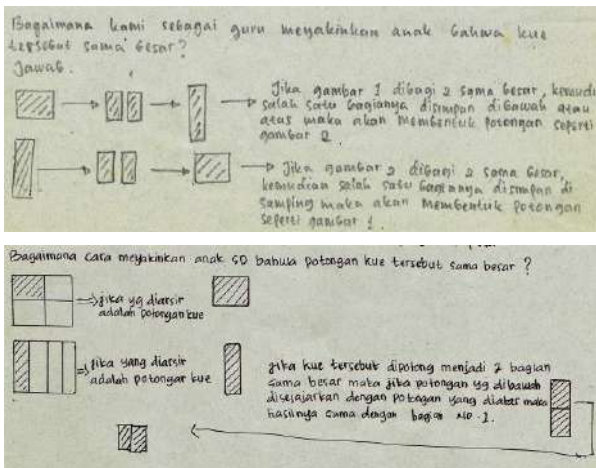 Bagaimana kami sebagai guru meyakinkan anak bahwa kue
tersebut sama besar?
Jawab.
Jika gambar 1 dibagi 2 sama besar, kemudi
salah satu bagianya disimpan dibawah atau
atas maka akan membentuk potongan seperti
gambar 2.
Jika gambar 2 dibagi 2 sama besar,
kemudian salah satu bagianya disimpan di
samping maka akan membentuk potongan
seperti gambar 1.
Bagaimana cara meyakinkan anak SD bahwa potongan kue tersebut sama besar ?
jika yg diarsir
adalah potongan kue
jika yang diarsir
adalah potongan kue
jika kue tersebut dipotong menjadi 2 bagian
sama besar maka jika potongan yg dibawah
disejajarkan dengan potongan yang diatas maka
hasilnya sama dengan bagian no. 1.